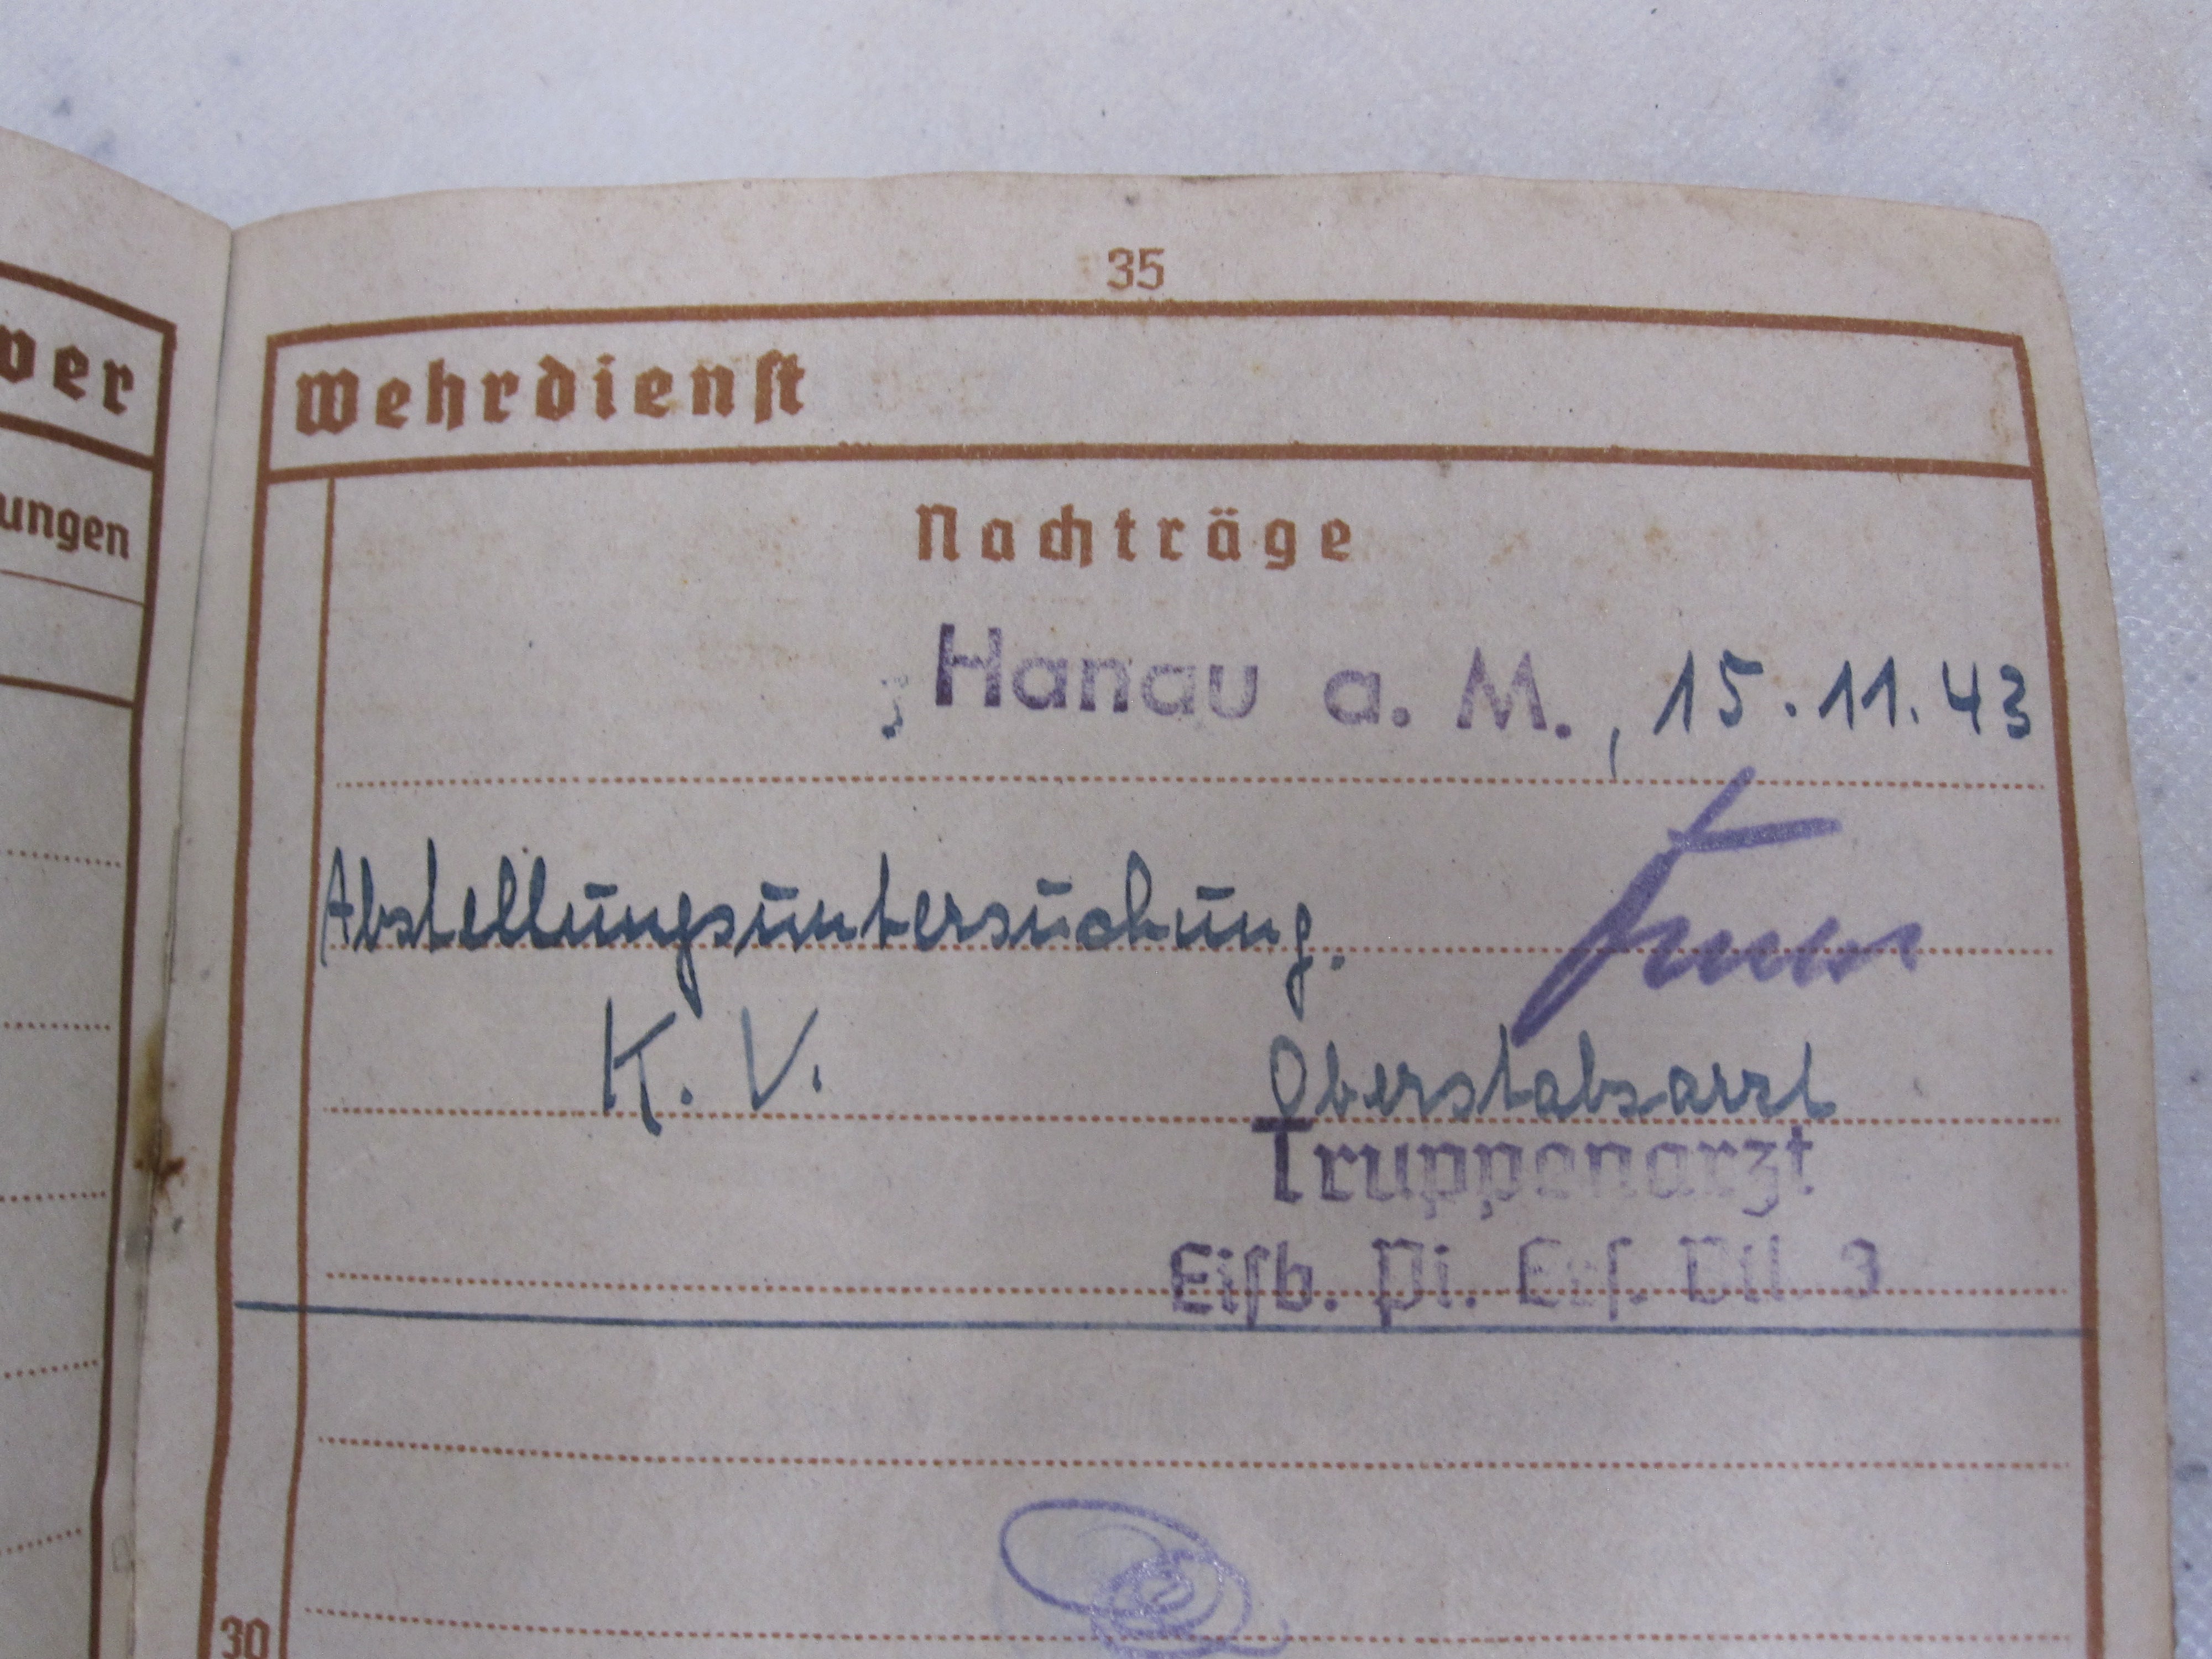 ver
ungen
35
Wehrdienst
Nachträge
Hanau a. M., 15.11.43
Abstellungsuntersuchung.
K. V.
Oberstabsarzt
Truppenarzt
Eisb. Pi. Ers. Btl. 3
30